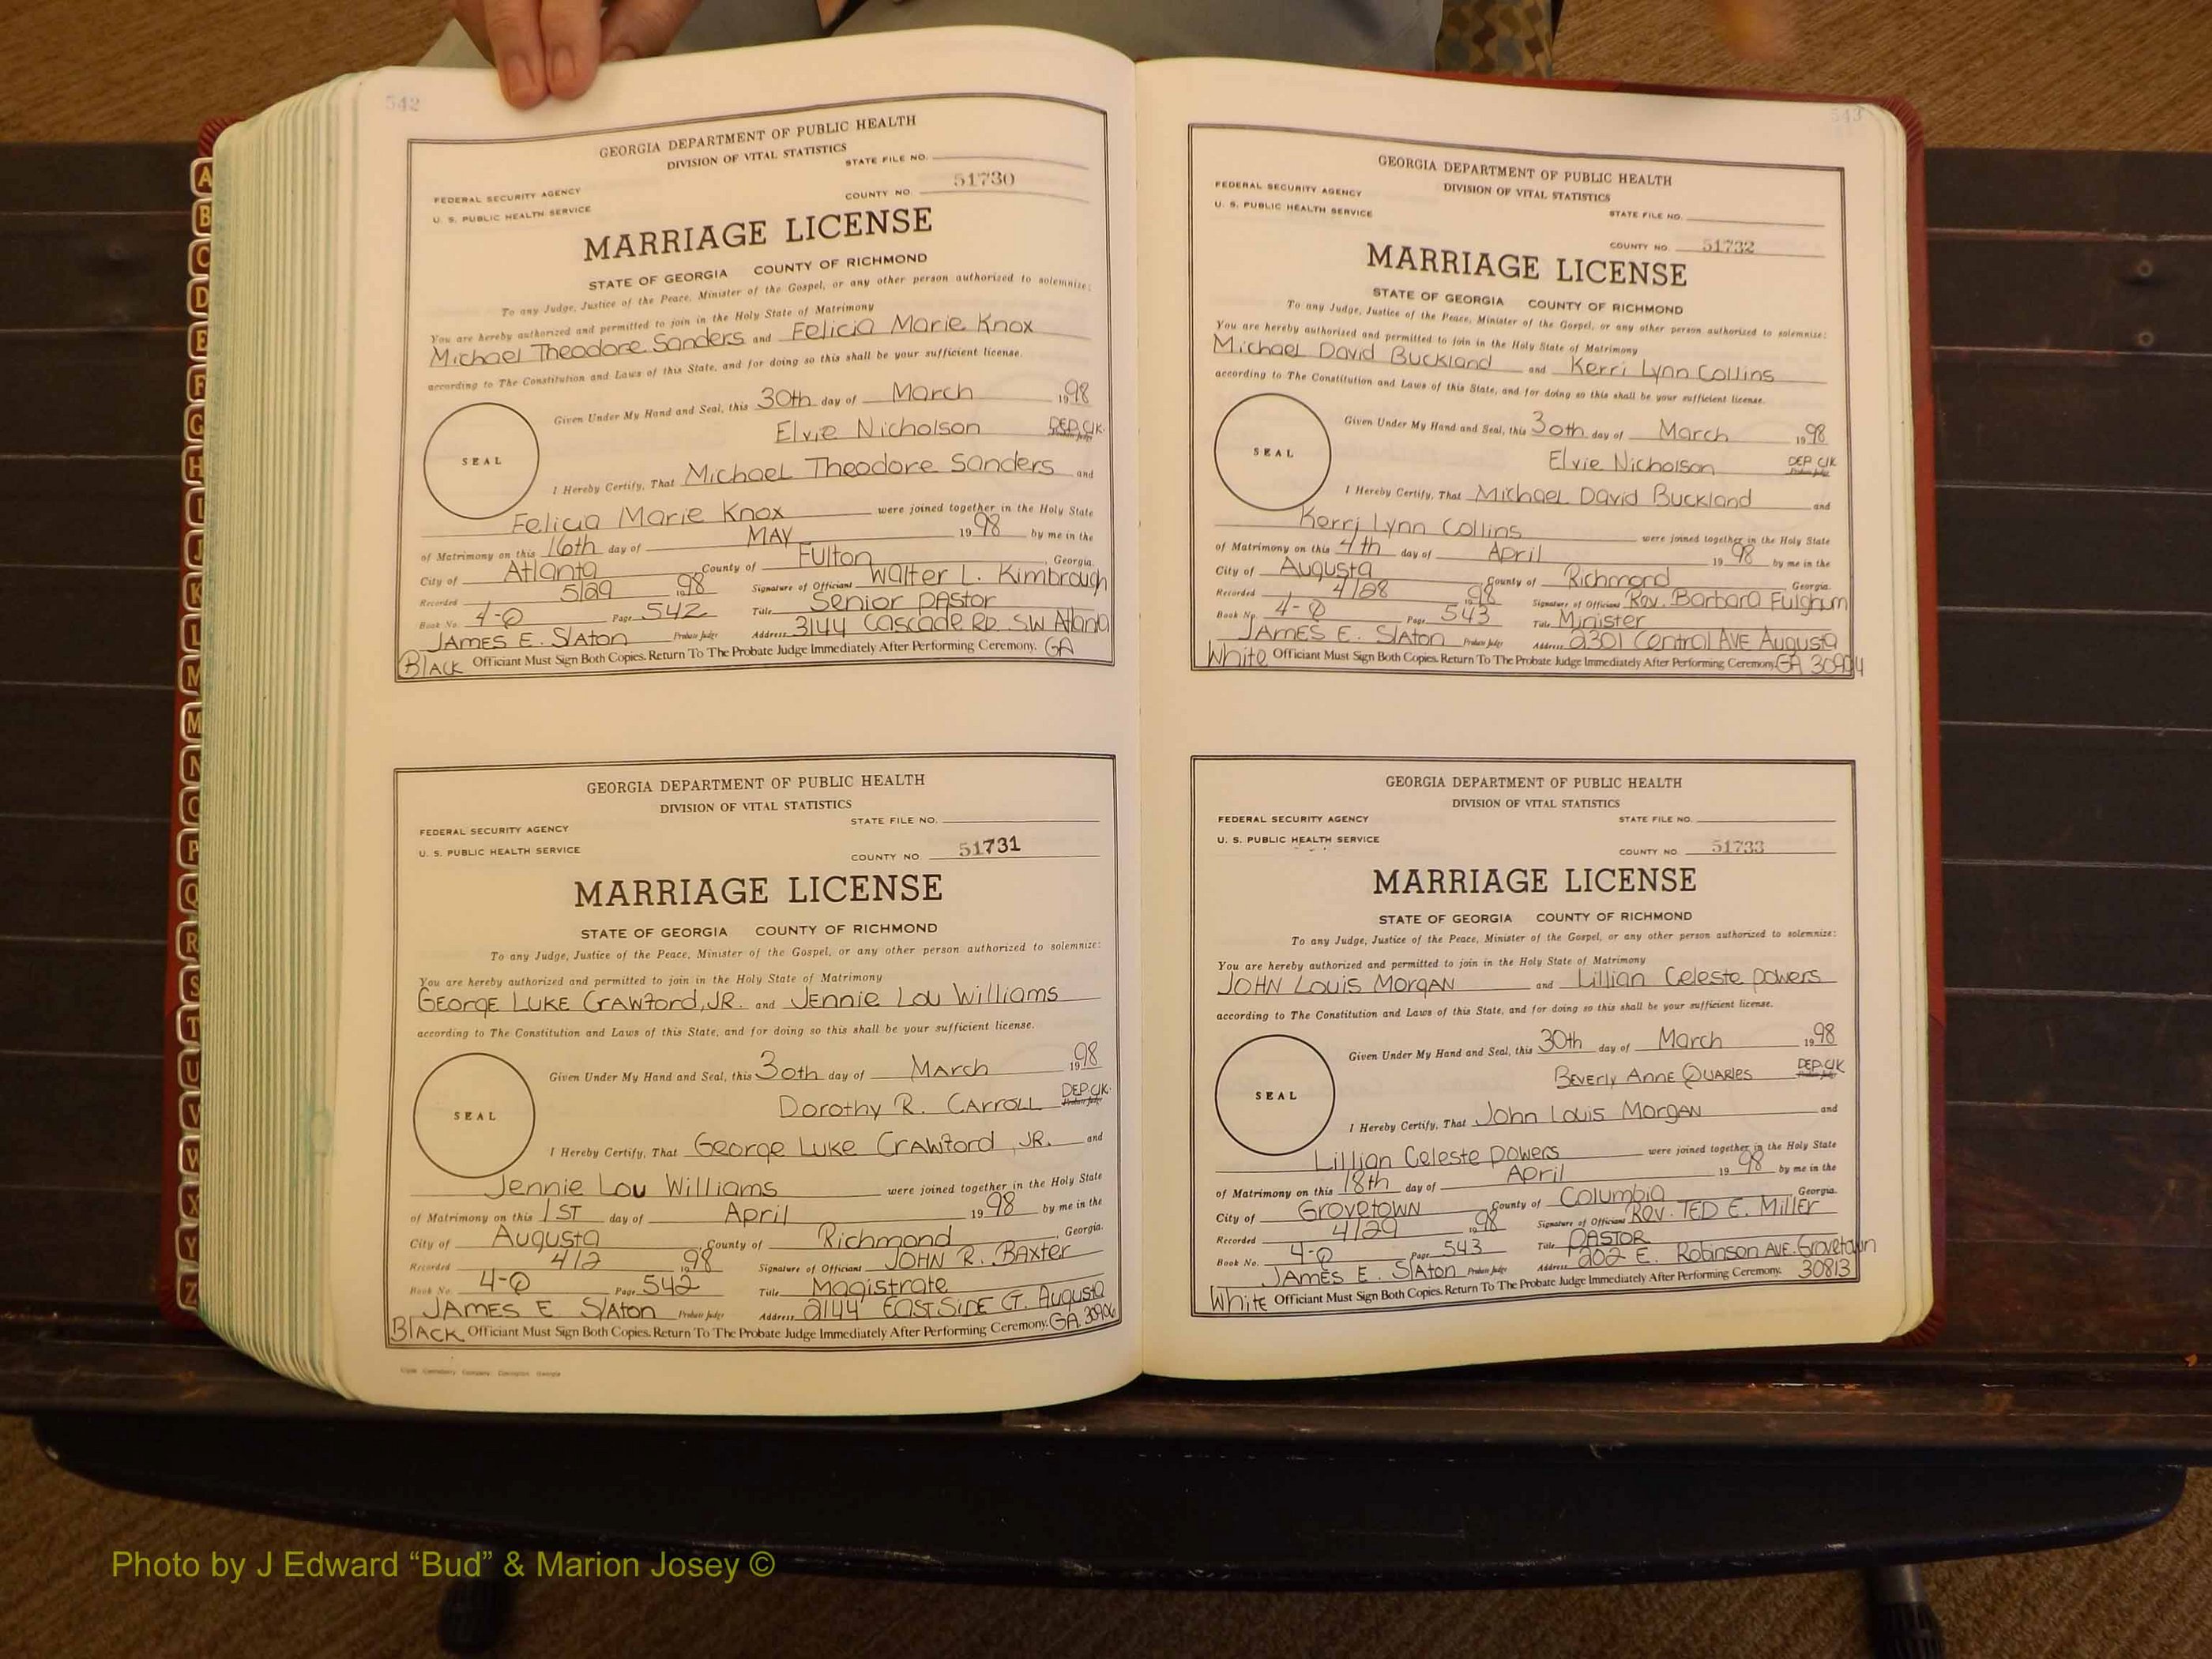 542
GEORGIA DEPARTMENT OF PUBLIC HEALTH
DIVISION OF VITAL STATISTICS
STATE FILE NO.
FEDERAL SECURITY AGENCY
U. S. PUBLIC HEALTH SERVICE
COUNTY NO. 51730
MARRIAGE LICENSE
STATE OF GEORGIA COUNTY OF RICHMOND
To any Judge, Justice of the Peace, Minister of the Gospel, or any other person authorized to solemnize:
You are hereby authorized and permitted to join in the Holy State of Matrimony
Michael Theodore Sanders and Felicia Marie Knox
according to The Constitution and Laws of this State, and for doing so this shall be your sufficient license.
Given Under My Hand and Seal, this 30th day of March 1998
Elvie Nicholson DEP. Clk. Probate Judge
SEAL
I Hereby Certify, That Michael Theodore Sanders and
Felicia Marie Knox were joined together in the Holy State
of Matrimony on this 16th day of MAY 1998 by me in the
City of Atlanta County of Fulton, Georgia.
Recorded 5/29 1998 Signature of Officiant Walter L. Kimbrough
Book No. 4-Q Page 542 Title Senior PAStor
JAMES E. SlATon Probate Judge Address 3144 Cascade RD. SW Atlanta
BlACK Officiant Must Sign Both Copies. Return To The Probate Judge Immediately After Performing Ceremony. GA
GEORGIA DEPARTMENT OF PUBLIC HEALTH
DIVISION OF VITAL STATISTICS
STATE FILE NO.
FEDERAL SECURITY AGENCY
U. S. PUBLIC HEALTH SERVICE
COUNTY NO. 51731
MARRIAGE LICENSE
STATE OF GEORGIA COUNTY OF RICHMOND
To any Judge, Justice of the Peace, Minister of the Gospel, or any other person authorized to solemnize:
You are hereby authorized and permitted to join in the Holy State of Matrimony
GEORGE LUKE CrAWford, JR. and Jennie Lou Williams
according to The Constitution and Laws of this State, and for doing so this shall be your sufficient license.
Given Under My Hand and Seal, this 30th day of MArch 1998
Dorothy R. CArroLL DEP. Clk. Probate Judge
SEAL
I Hereby Certify, That George Luke CrAWford, JR. and
Jennie Lou Williams were joined together in the Holy State
of Matrimony on this 1ST day of April 1998 by me in the
City of Augusta County of Richmond, Georgia.
Recorded 4/2 1998 Signature of Officiant JOHN R. BAxter
Book No. 4-Q Page 542 Title Magistrate
JAMES E SlATon Probate Judge Address 2144 EAST SIDE CT. Augusta
BlACK Officiant Must Sign Both Copies. Return To The Probate Judge Immediately After Performing Ceremony. GA 30906
543
GEORGIA DEPARTMENT OF PUBLIC HEALTH
DIVISION OF VITAL STATISTICS
FEDERAL SECURITY AGENCY
U. S. PUBLIC HEALTH SERVICE
STATE FILE NO.
COUNTY NO. 51732
MARRIAGE LICENSE
STATE OF GEORGIA COUNTY OF RICHMOND
To any Judge, Justice of the Peace, Minister of the Gospel, or any other person authorized to solemnize:
You are hereby authorized and permitted to join in the Holy State of Matrimony
Michael David Buckland and Kerri Lynn Collins
according to The Constitution and Laws of this State, and for doing so this shall be your sufficient license.
Given Under My Hand and Seal, this 30th day of March 1998
Elvie Nicholson DEP. Clk Probate Judge
SEAL
I Hereby Certify, That Michael David Buckland and
Kerri Lynn Collins were joined together in the Holy State
of Matrimony on this 4th day of April 1998 by me in the
City of Augusta County of Richmond Georgia.
Recorded 4/28 1998 Signature of Officiant Rev. Barbara Fulghum
Book No. 4-Q Page 543 Title Minister
JAMES E. SlATon Probate Judge Address 2301 Central AVE Augusta
White Officiant Must Sign Both Copies. Return To The Probate Judge Immediately After Performing Ceremony. GA 30904
GEORGIA DEPARTMENT OF PUBLIC HEALTH
DIVISION OF VITAL STATISTICS
FEDERAL SECURITY AGENCY
STATE FILE NO.
U. S. PUBLIC HEALTH SERVICE
COUNTY NO 51733
MARRIAGE LICENSE
STATE OF GEORGIA COUNTY OF RICHMOND
To any Judge, Justice of the Peace, Minister of the Gospel, or any other person authorized to solemnize:
You are hereby authorized and permitted to join in the Holy State of Matrimony
JOHN Louis MorgAN and Lillian Celeste powers
according to The Constitution and Laws of this State, and for doing so this shall be your sufficient license.
Given Under My Hand and Seal, this 30th day of March 1998
BEVErly AnnE QUARlES DEP. Clk Probate Judge
SEAL
I Hereby Certify, That John Louis MorgAN and
Lillian Celeste powers were joined together in the Holy State
of Matrimony on this 18th day of April 1998 by me in the
City of Grovetown County of Columbia Georgia.
Recorded 4/29 1998 Signature of Officiant Rev. TED E. Miller
Book No. 4-Q Page 543 Title PASTOR
JAMES E. SlATon Probate Judge Address 202 E. Robinson AVE. Grovetown
White Officiant Must Sign Both Copies. Return To The Probate Judge Immediately After Performing Ceremony. 30813
A
B
C
D
E
F
G
H
I
J
K
L
M
M
N
O
P
Q
R
S
T
U
V
W
X
Y
Z
Photo by J Edward “Bud” & Marion Josey ©